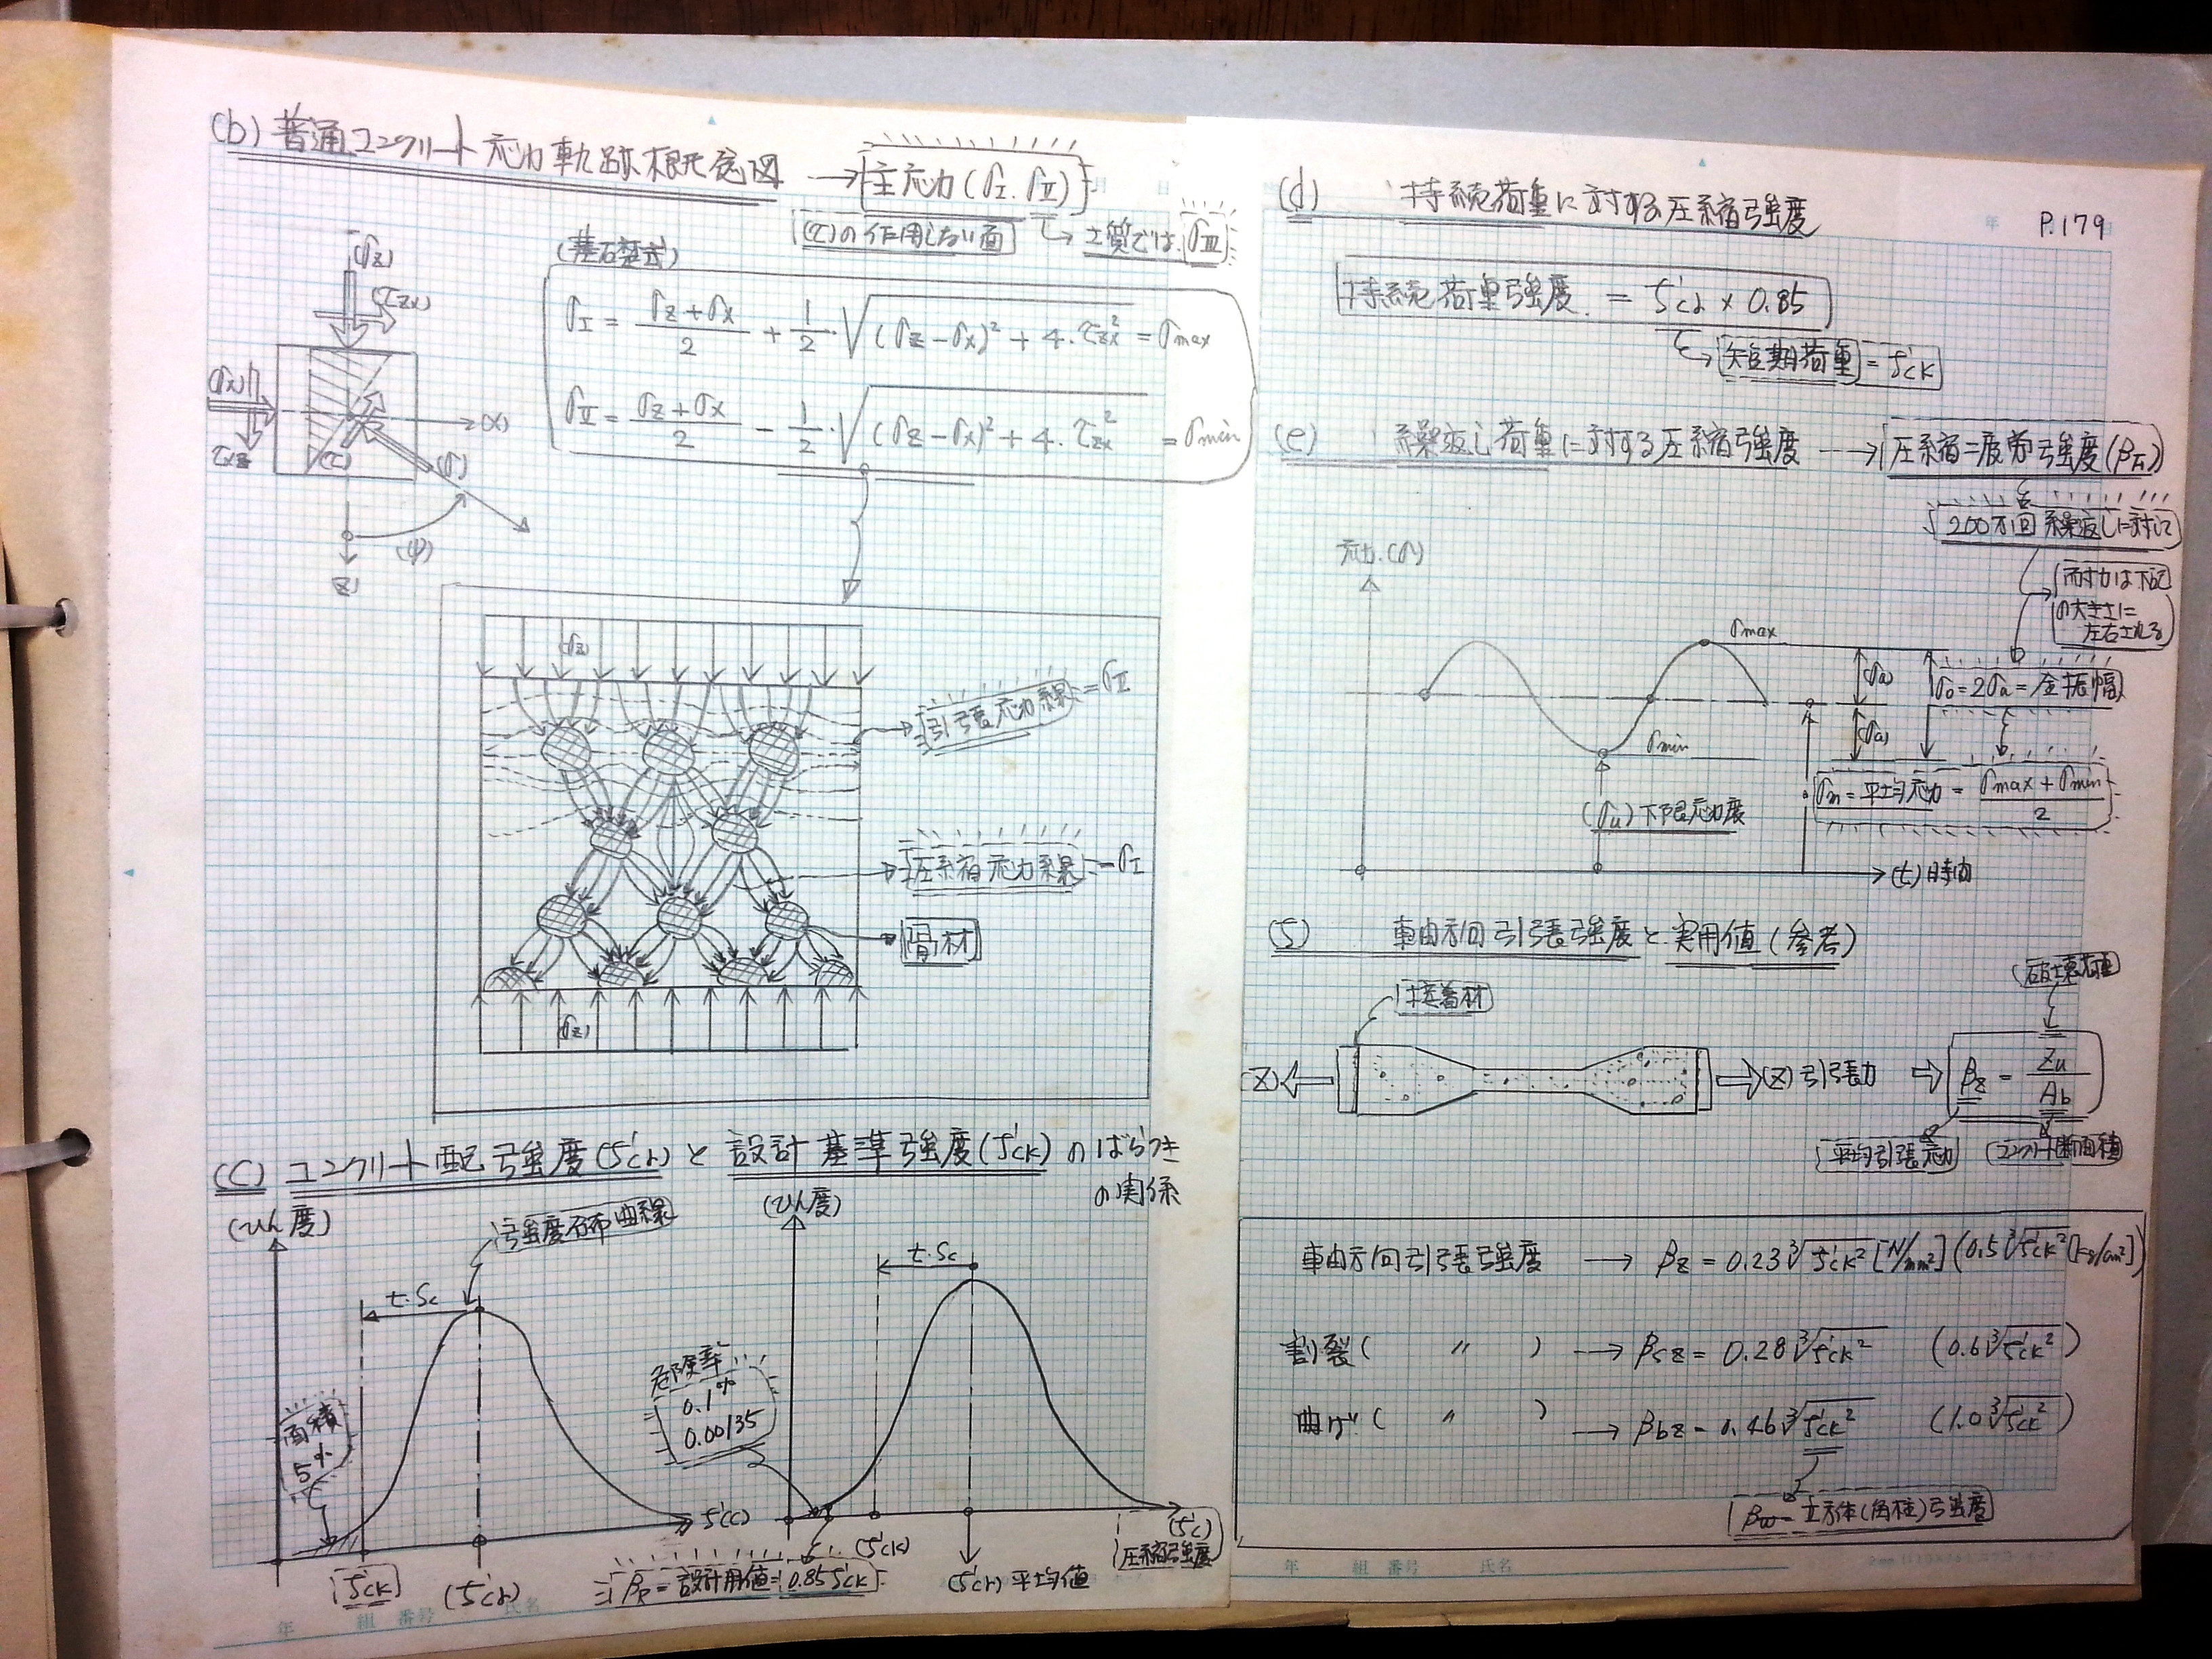 (b) 普通コンクリート応力軌跡概念図 → 主応力 (σI. σII)
(τ)の作用しない面 → 土質では. σIII
(基礎式)
σI = (σz + σx)/2 + 1/2・√((σz − σx)² + 4・τzx²) = σmax
σII = (σz + σx)/2 − 1/2・√((σz − σx)² + 4・τzx²) = σmin
(σz)
(τzx)
(σx)
τxz
(x)
(τ)
(σ)
(φ)
z)
(σz)
引張応力線 = σII
圧縮応力線 − σI
骨材
(σz)
(c) コンクリート配強度(f'cr)と設計基準強度(f'ck)のばらつき
の関係
(ひん度)
強度分布曲線
t・Sc
面積
5%
f'(c)
f'ck
(f'cr)
(ひん度)
t・Sc
危険率
0.1%
0.00135
(f'ck)
(f'c)
圧縮強度
βR = 設計用値 = 0.85f'ck
(f'cr) 平均値
年 組 番号 氏名
P.179
(d) 持続荷重に対する圧縮強度
持続荷重強度 = f'cr × 0.85
短期荷重 = f'ck
(e) 繰返し荷重に対する圧縮強度 → 圧縮疲労強度
200万回繰返しに対して
耐力は下記
の大きさに
左右される
応力.(σ)
σmax
(σa)
σo = 2σa = 全振幅
σmin
(σa)
σm = 平均応力 = (σmax + σmin)/2
(σu) 下限応力度
(t) 時間
(f) 軸方向引張強度と実用値(参考)
接着材
破壊荷重
(Z)
(Z) 引張力
βz = Zu/Ab
平均引張応力
コンクリート断面積
軸方向引張強度 → βz = 0.23∛f'ck² [N/mm²] (0.5∛f'ck² [kg/cm²])
割裂( 〃 ) → βsz = 0.28∛f'ck² (0.6∛f'ck²)
曲げ( 〃 ) → βbz = 0.46∛f'ck² (1.0∛f'ck²)
βw = 立方体(角柱)強度
年 組 番号 氏名